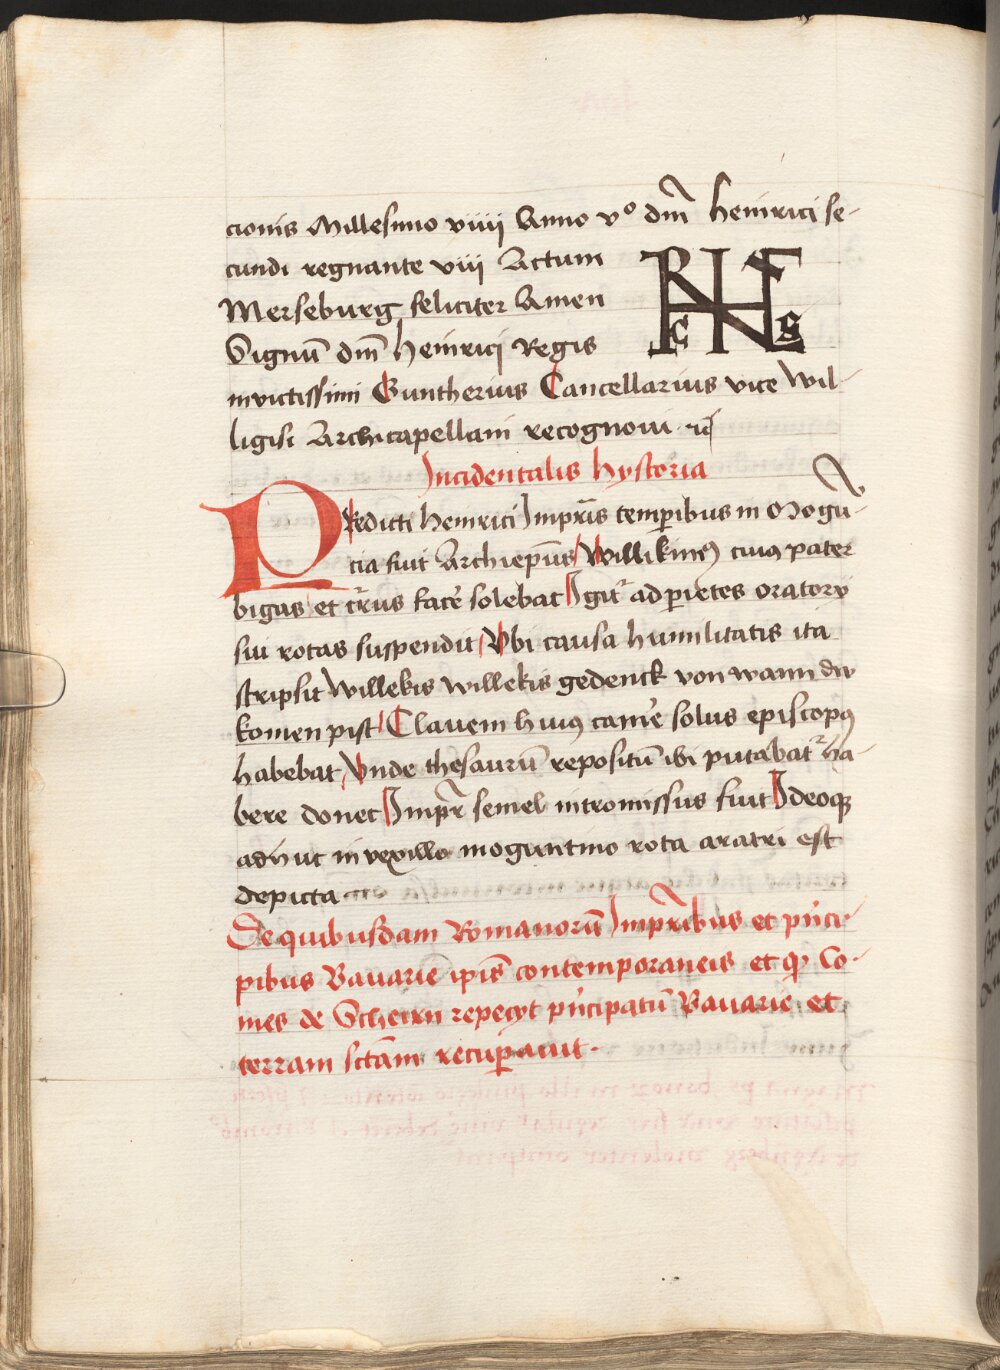 cionis Millesimo viiij Anno v° dm̄ Heinrici se-
cundi regnante viii Actum
Merseburg feliciter Amen
Signū dm̄ Heinricj Regis
invictissimi Guntherius Cancellarius vice Wil-
ligisi Archicapellani recognoui
Incidentalis hystoria
Predicti Heinrici Impr̄is temꝑibus in Mogū-
cia fuit Archiep̄us Willikinꝰ cuiꝰ pater
bigas et cr̄rus facē solebat Igit᷑ ad ꝑietes oratorÿ
sui rotas suspendit Vbi causa humilitatis ita
scripsit Willekis Willekis gedenck von wann dw
komen pist Clauem huiꝰ camē solus episcopꝰ
habebat Vnde thesaurū repositū ibi putabat᷑ ha-
bere donec Impr̄ semel intromissus fuit Ideoqꝫ
adhuc in vexillo moguntino rota aratri est
depicta
De quibusdam Romanorū Impr̄ibus et pn̄ci-
pibus Bauarie ip̄is contemporaneis et qꝫ Co-
mes de Scheirn repecÿt pn̄cipatū Bauarie et
terram sctām recuꝑauit.